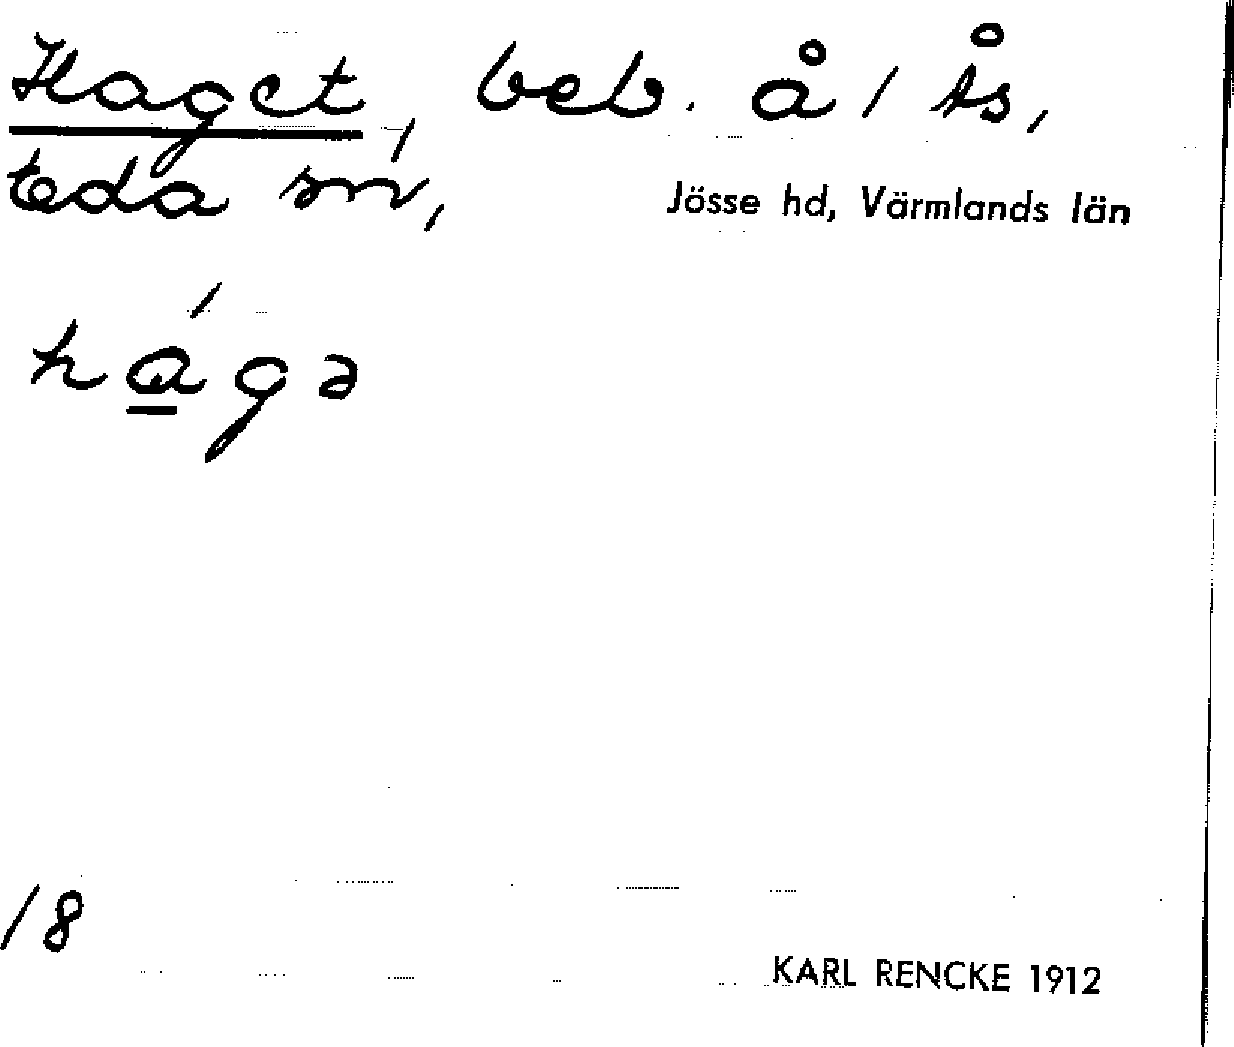 Haget, beb. å / Ås,
teda sn,
Jösse hd, Värmlands län
hágə
/8
KARL RENCKE 1912